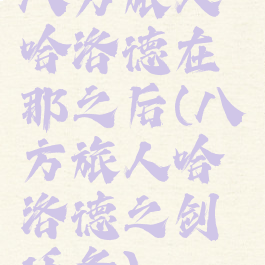 八方旅人
哈洛德在
那之后(八
方旅人哈
洛德之剑